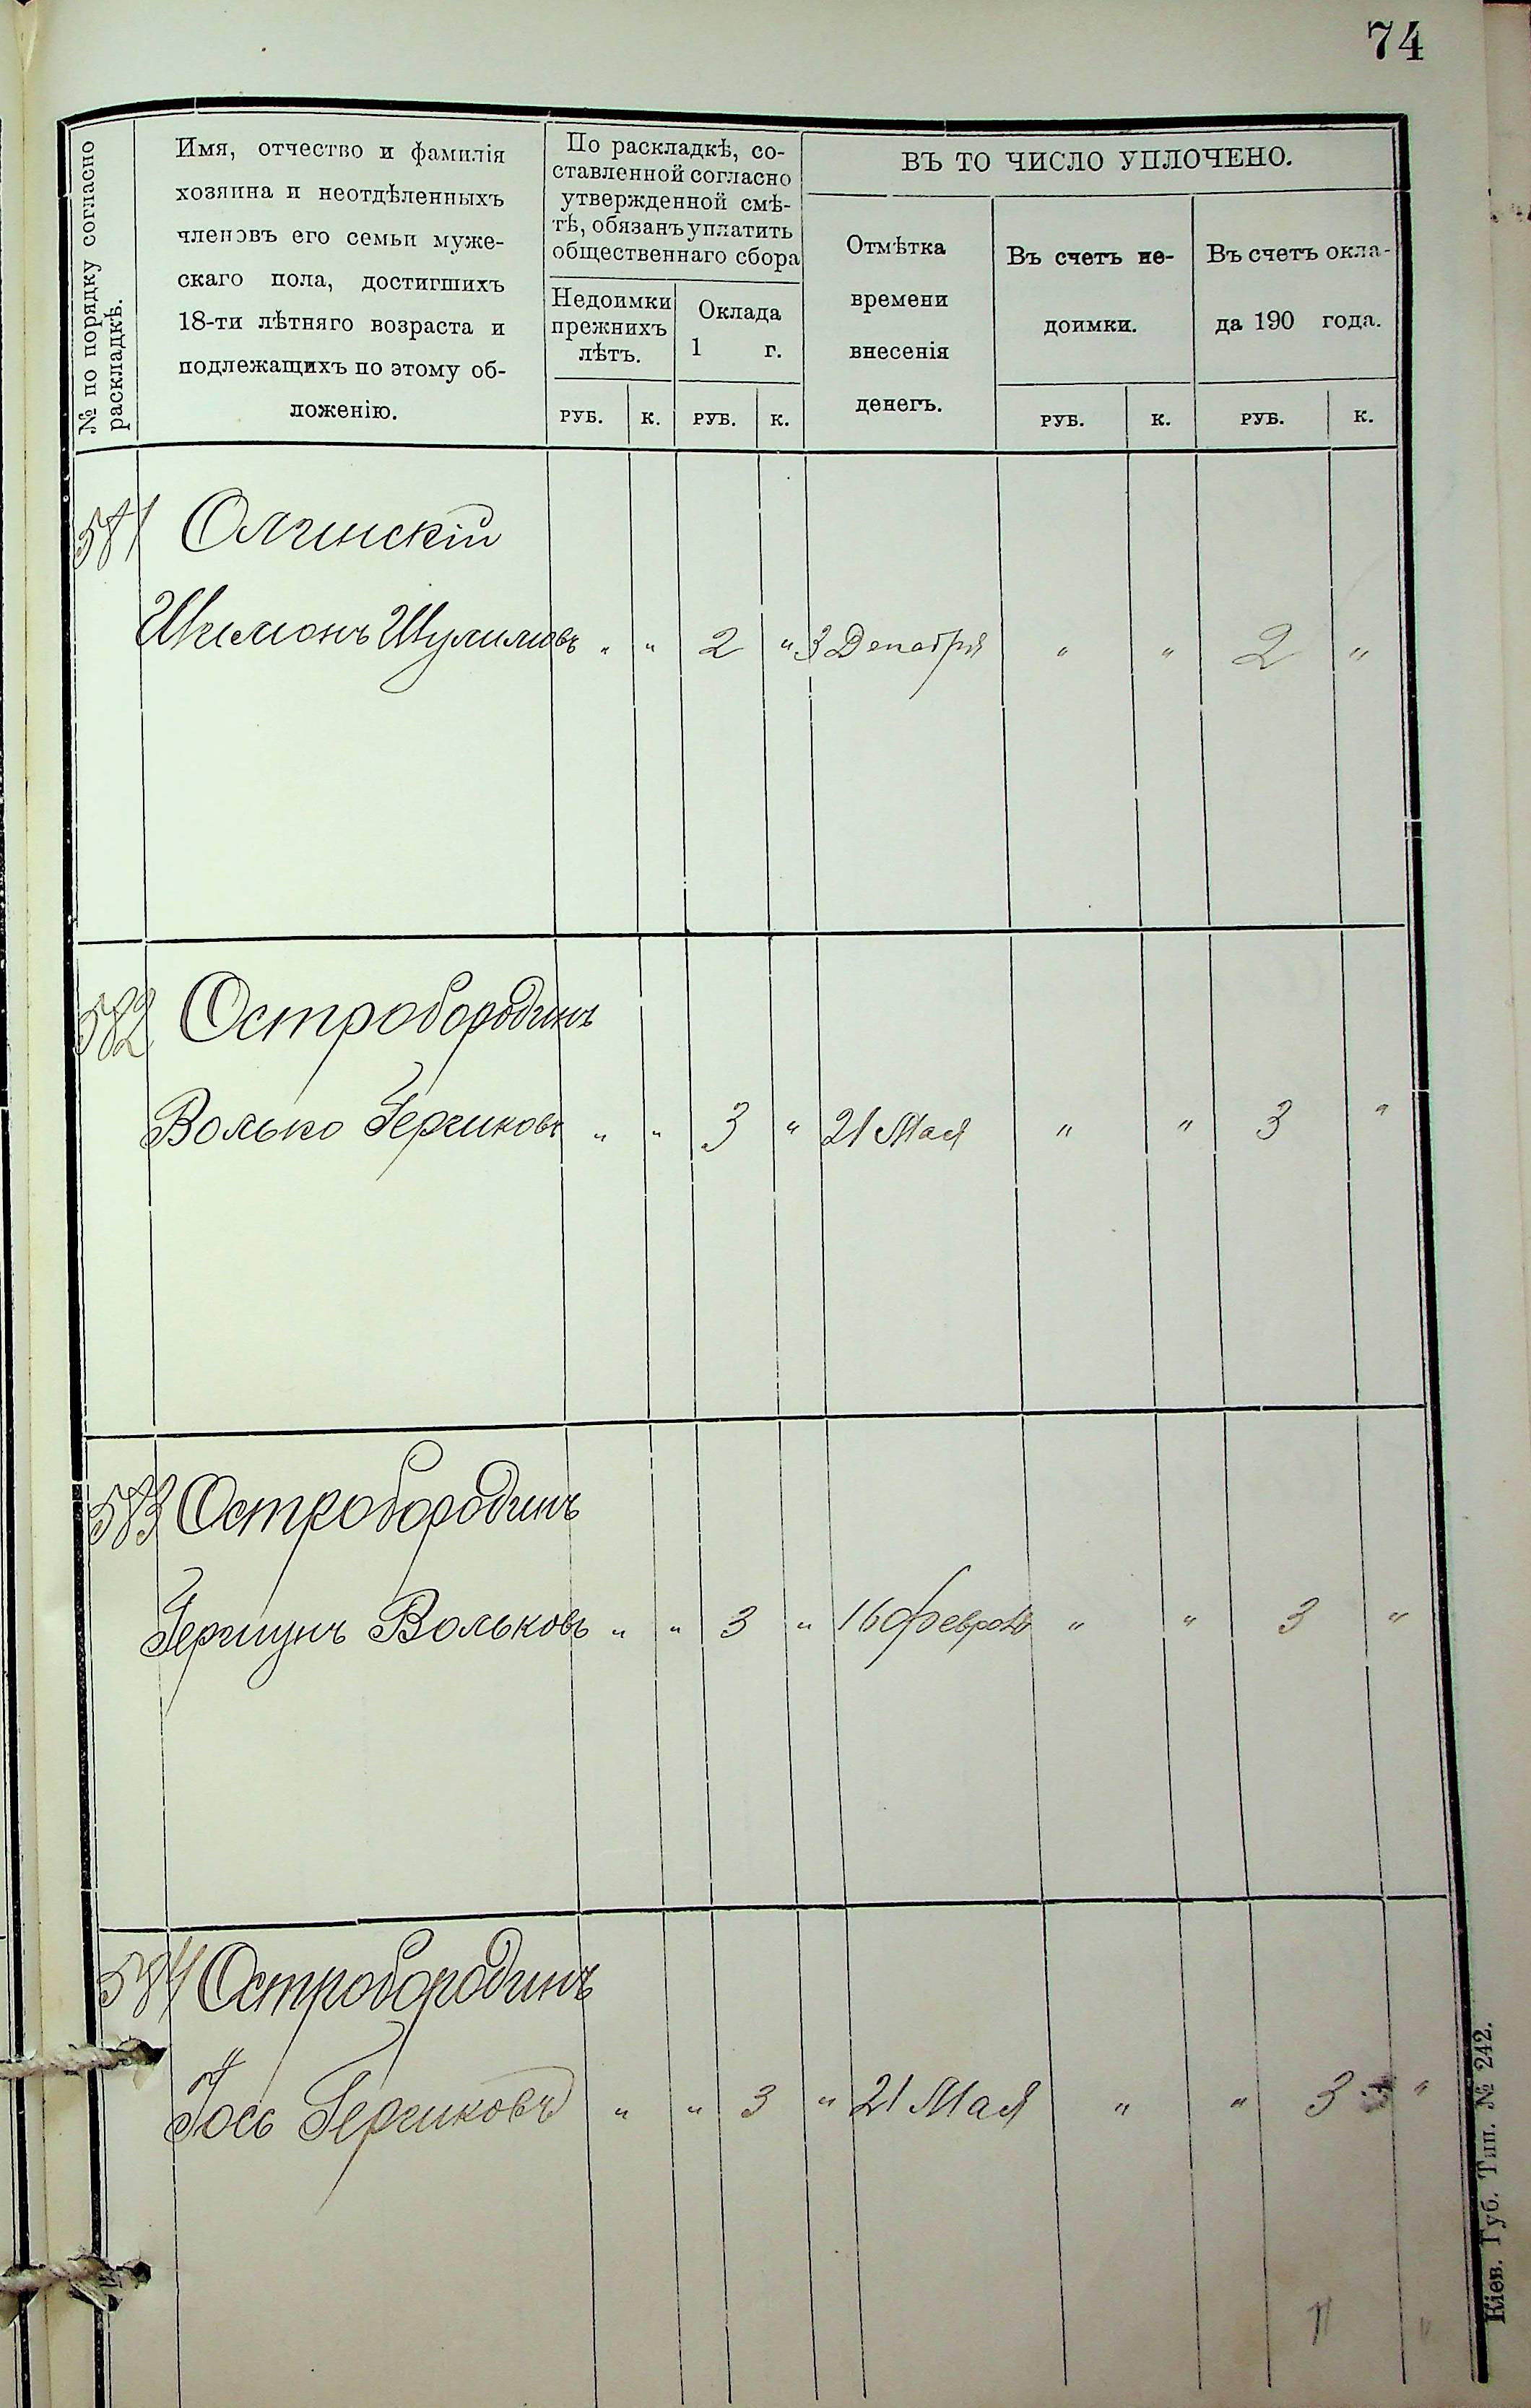 74
№ по порядку согласно
раскладкѣ.
Имя, отчество и фамилія
хозяина и неотдѣленныхъ
членовъ его семьи муже-
скаго пола, достигшихъ
18-ти лѣтняго возраста и
подлежащихъ по этому об-
ложенію.
По раскладкѣ, со-
ставленной согласно
утвержденной смѣ-
тѣ, обязанъ уплатить
общественнаго сбора
Недоимки
прежнихъ
лѣтъ.
Оклада
1 г.
ВЪ ТО ЧИСЛО УПЛОЧЕНО.
Отмѣтка
времени
внесенія
денегъ.
Въ счетъ не-
доимки.
Въ счетъ окла-
да 190 года.
РУБ. К. РУБ. К. РУБ. К. РУБ. К.
581 Олчинскій
Шимонъ Шулимовъ " " 2 " 3 Декабря " " 2 "
582 Остробородинъ
Волько Герчиковъ " " 3 " 21 Мая " " 3 "
583 Остробородинъ
Гершунъ Вольковъ " " 3 " 16 Февраля " " 3 "
584 Остробородинъ
Іось Герчиковъ " " 3 " 21 Мая " " 3 "
Кіев. Губ. Тип. № 242.